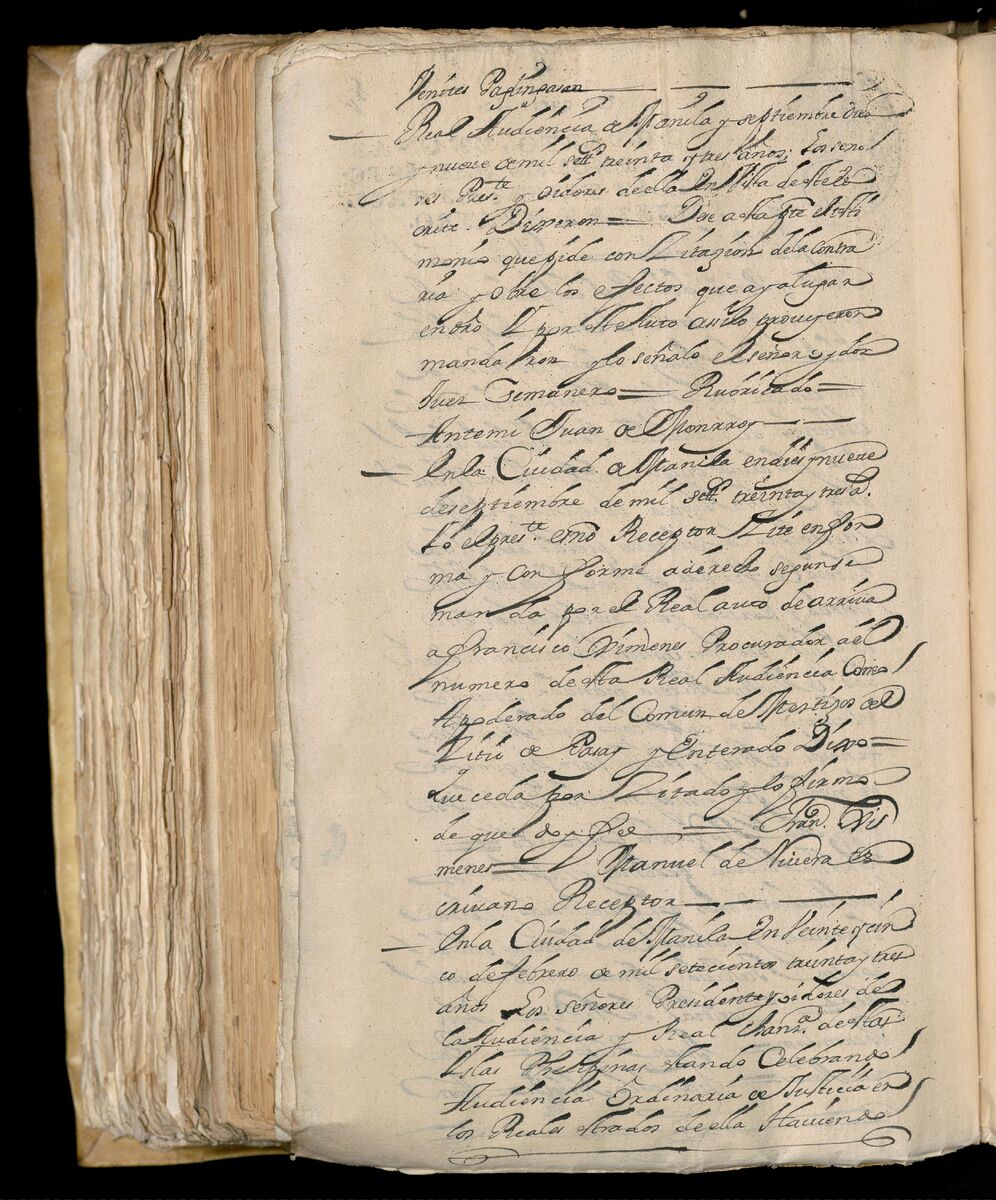 Venites Paguinpasan
Real Audiencia de Manila y septiembre dies
y nueve de mil sett.s treinta y tres años; Los seño
res Pres.te y oidores de ella En Vista de este es
crito. Dixeron = Dese a esta p.te el testi
monio que pide con Zitazion de la contra
ria y obre los efectos que aya lugar
en dro Y por este Auto assi lo proveyeron
mandaron y lo señalo el señor oydor
Juez Semanero = Rubricado =
Antemi Juan de Monrroy
En la Ciudad de Manila en dies y nueve
de septiembre de mil sett.s treinta y tres a.s
Yo el pres.te esno Receptor Zite en for
ma y conforme a derecho segun se
manda por el Real auto de arriva
a Francisco Ximenes Procurador del
numero de esta Real Audiencia Como
Apoderado del Comun de Mestizos del
Zitio de Pasay y Enterado Dixo =
Que se da por Zitado y lo firmo
de que doy fee = Fran.co Xis
menes = Manuel de Nivera es
crivano Receptor
En la Ciudad de Manila En Veinte y cin
co de febrero de mil setecientos treinta y tres
años Los señores Presidente y oidores de
la Audiencia y Real chanz.a de estas
Yslas Philipinas estando Celebrando
Audiencia Ordinaria de Justicia en
los Reales estrados de ella Haviendo